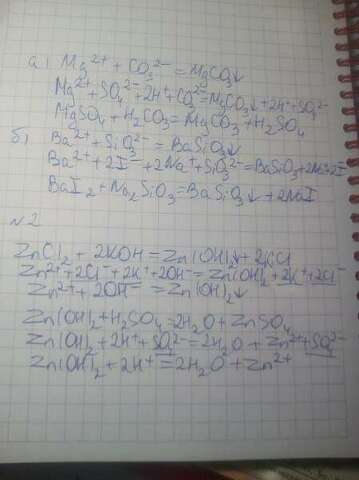 а) Mg²⁺ + CO₃²⁻ = MgCO₃↓
Mg²⁺+SO₄²⁻+2H⁺+CO₃²⁻=MgCO₃↓+2H⁺+SO₄²⁻
MgSO₄ + H₂CO₃ = MgCO₃ + H₂SO₄
б) Ba²⁺ + SiO₃²⁻ = BaSiO₃↓
Ba²⁺ + 2I⁻ + 2Na⁺ + SiO₃²⁻ = BaSiO₃+2Na⁺+2I⁻
BaI₂ + Na₂SiO₃ = BaSiO₃↓ + 2NaI
№2
ZnCl₂ + 2KOH = Zn(OH)₂↓ + 2KCl
Zn²⁺ + 2Cl⁻ + 2K⁺ + 2OH⁻ = Zn(OH)₂ + 2K⁺ + 2Cl⁻
Zn²⁺ + 2OH⁻ = Zn(OH)₂↓
Zn(OH)₂ + H₂SO₄ = 2H₂O + ZnSO₄
Zn(OH)₂ + 2H⁺ + SO₄²⁻ = 2H₂O + Zn²⁺ + SO₄²⁻
Zn(OH)₂ + 2H⁺ = 2H₂O + Zn²⁺